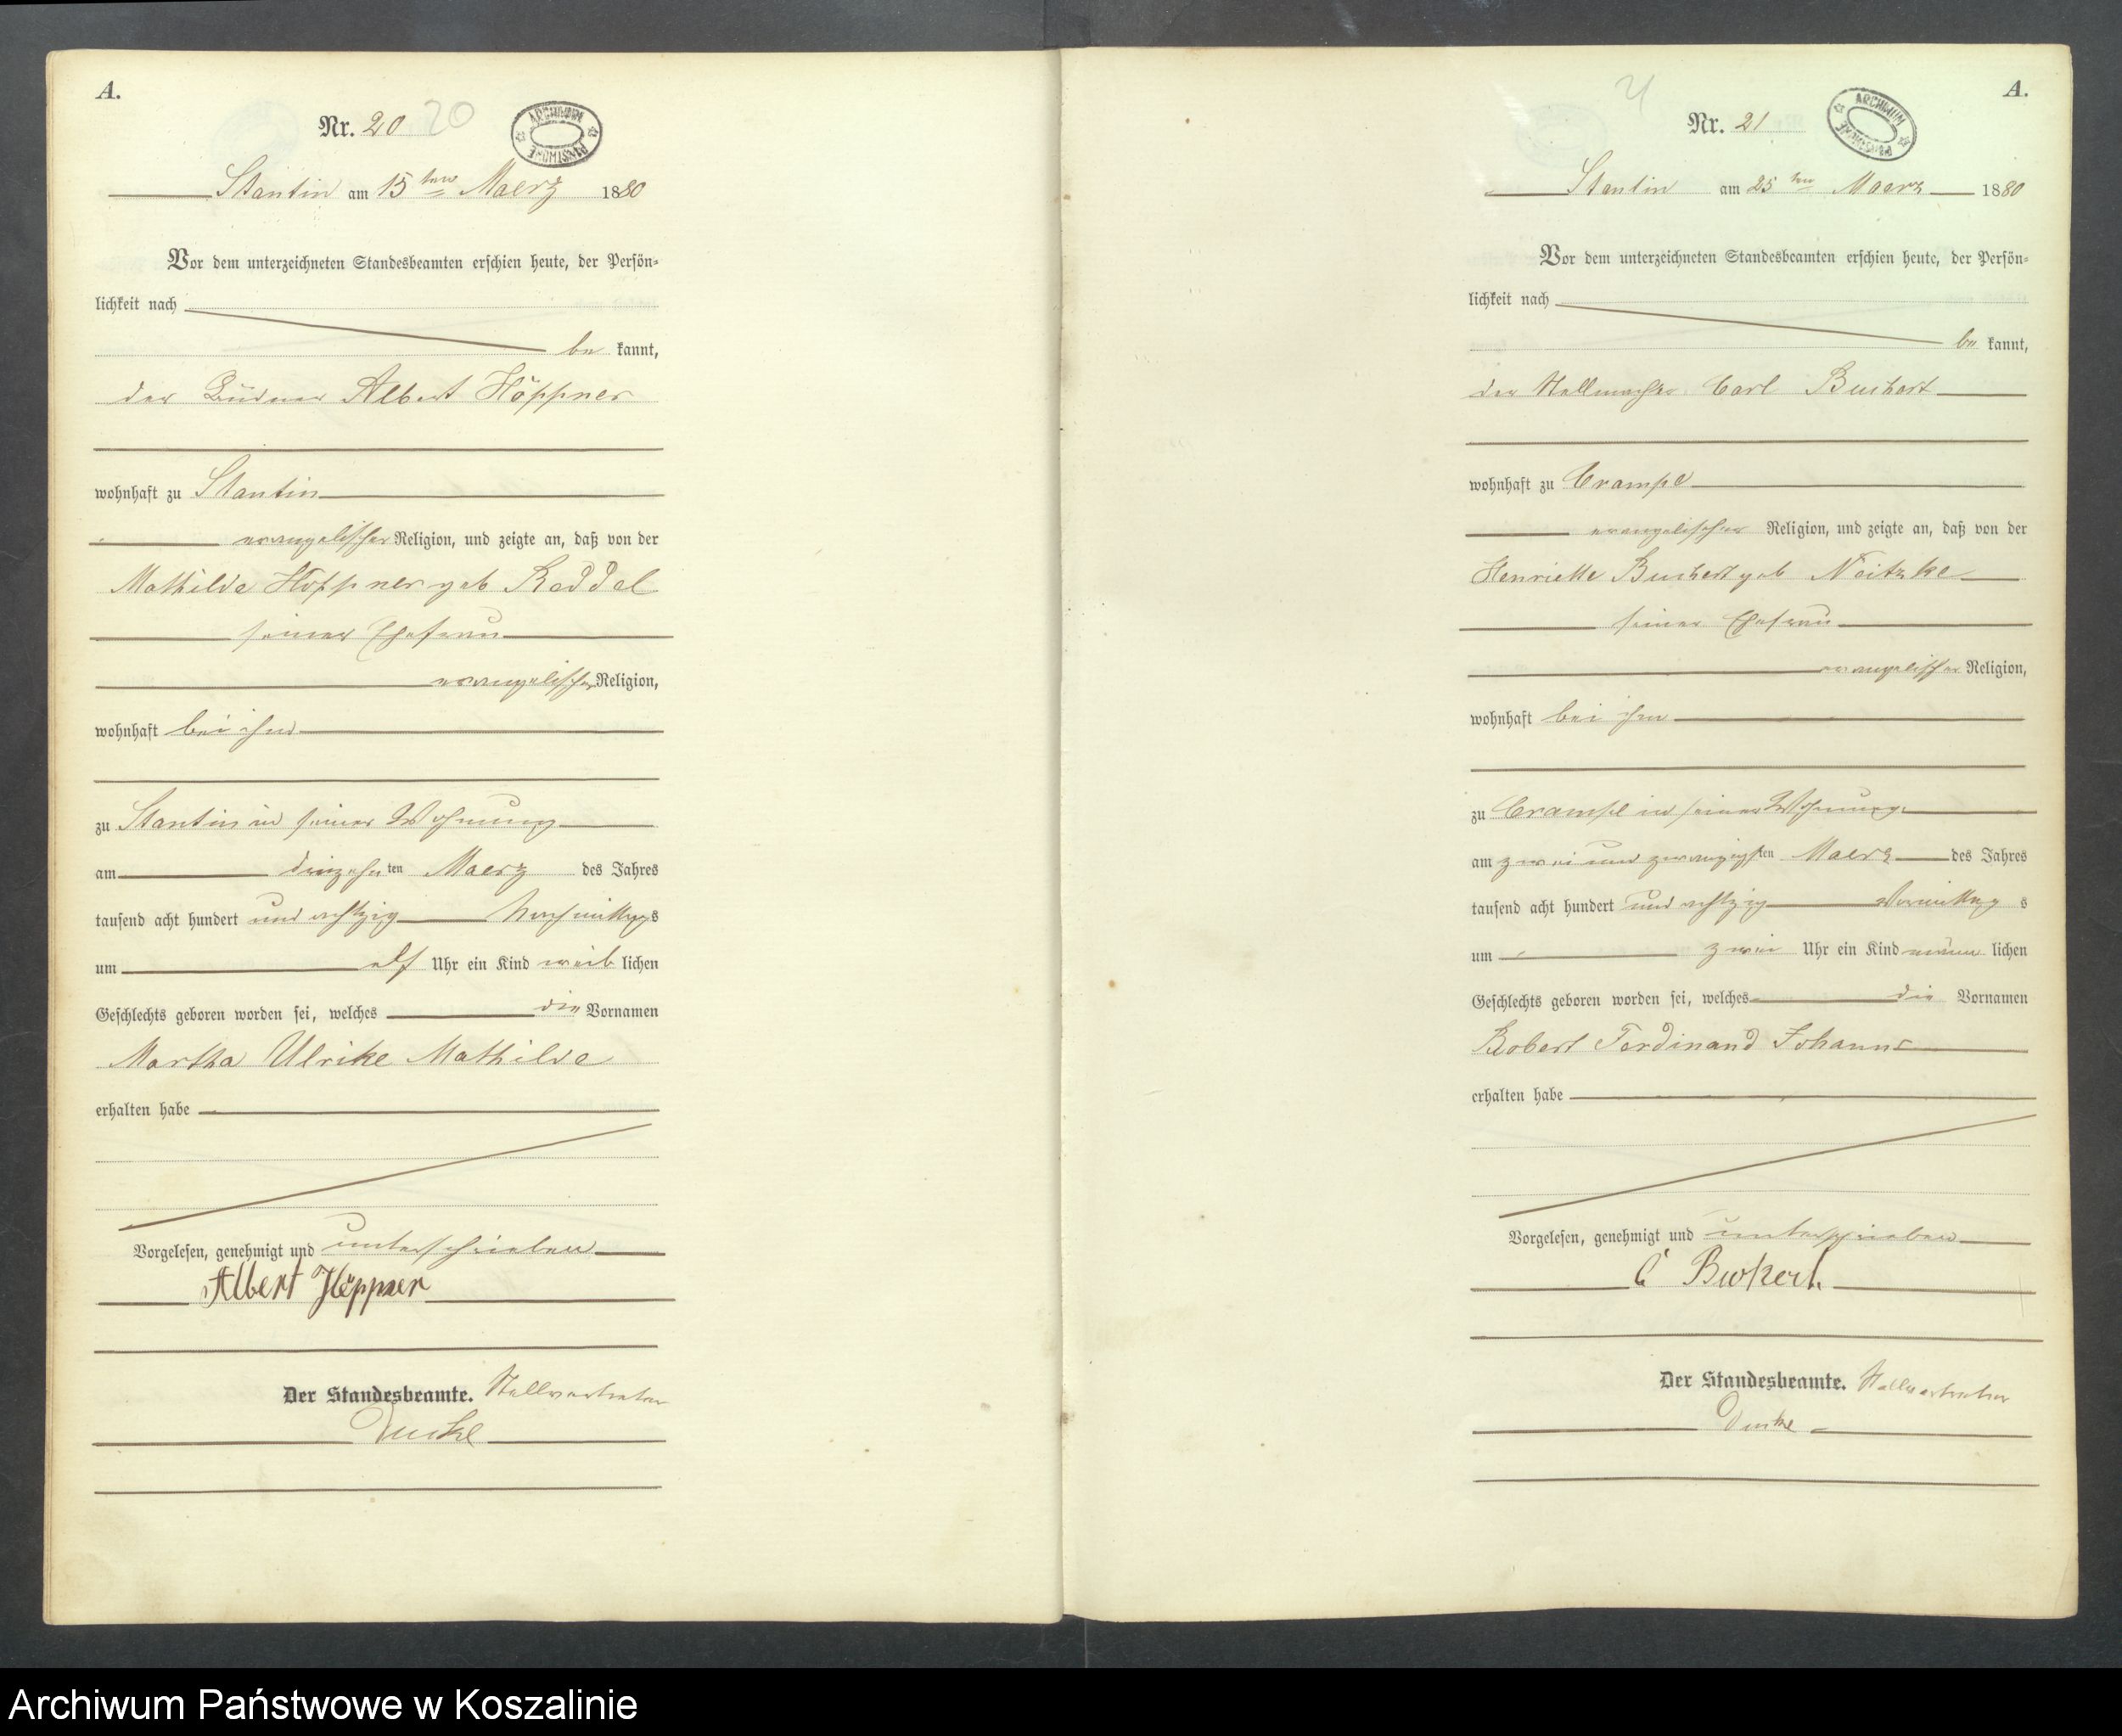 A.
Nr. 20 20
ARCHIWUM PAŃSTWOWE
Stantin am 15 ten Maerz 1880
Vor dem unterzeichneten Standesbeamten erschien heute, der Persön-
lichkeit nach
be kannt,
der Büdner Albert Höppner
wohnhaft zu Stantin
evangelischer Religion, und zeigte an, daß von der
Mathilde Höppner geb Reddel
seiner Ehefrau
evangelischer Religion,
wohnhaft bei ihm
zu Stantin in seiner Wohnung
am dreizehn ten Maerz des Jahres
tausend acht hundert und achtzig Nachmittags
um elf Uhr ein Kind weib lichen
Geschlechts geboren worden sei, welches die Vornamen
Martha Ulrike Mathilde
erhalten habe
Vorgelesen, genehmigt und unterschrieben
Albert Höppner
Der Standesbeamte. Stellvertreter
A.
Nr. 21
ARCHIWUM PAŃSTWOWE
Stantin am 25 ten Maerz 1880
Vor dem unterzeichneten Standesbeamten erschien heute, der Persön-
lichkeit nach
be kannt,
der Stellmacher Carl
wohnhaft zu Crampe
evangelischer Religion, und zeigte an, daß von der
Henriette geb Noitzke
seiner Ehefrau
evangelischer Religion,
wohnhaft bei ihm
zu Crampe in seiner Wohnung
am zwei und zwanzigsten Maerz des Jahres
tausend acht hundert und achtzig Vormittag s
um zwei Uhr ein Kind männ lichen
Geschlechts geboren worden sei, welches die Vornamen
Robert Ferdinand Johannes
erhalten habe
Vorgelesen, genehmigt und unterschrieben
C
Der Standesbeamte. Stellvertreter
Archiwum Państwowe w Koszalinie